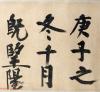 庚子之
冬十月
既望陽